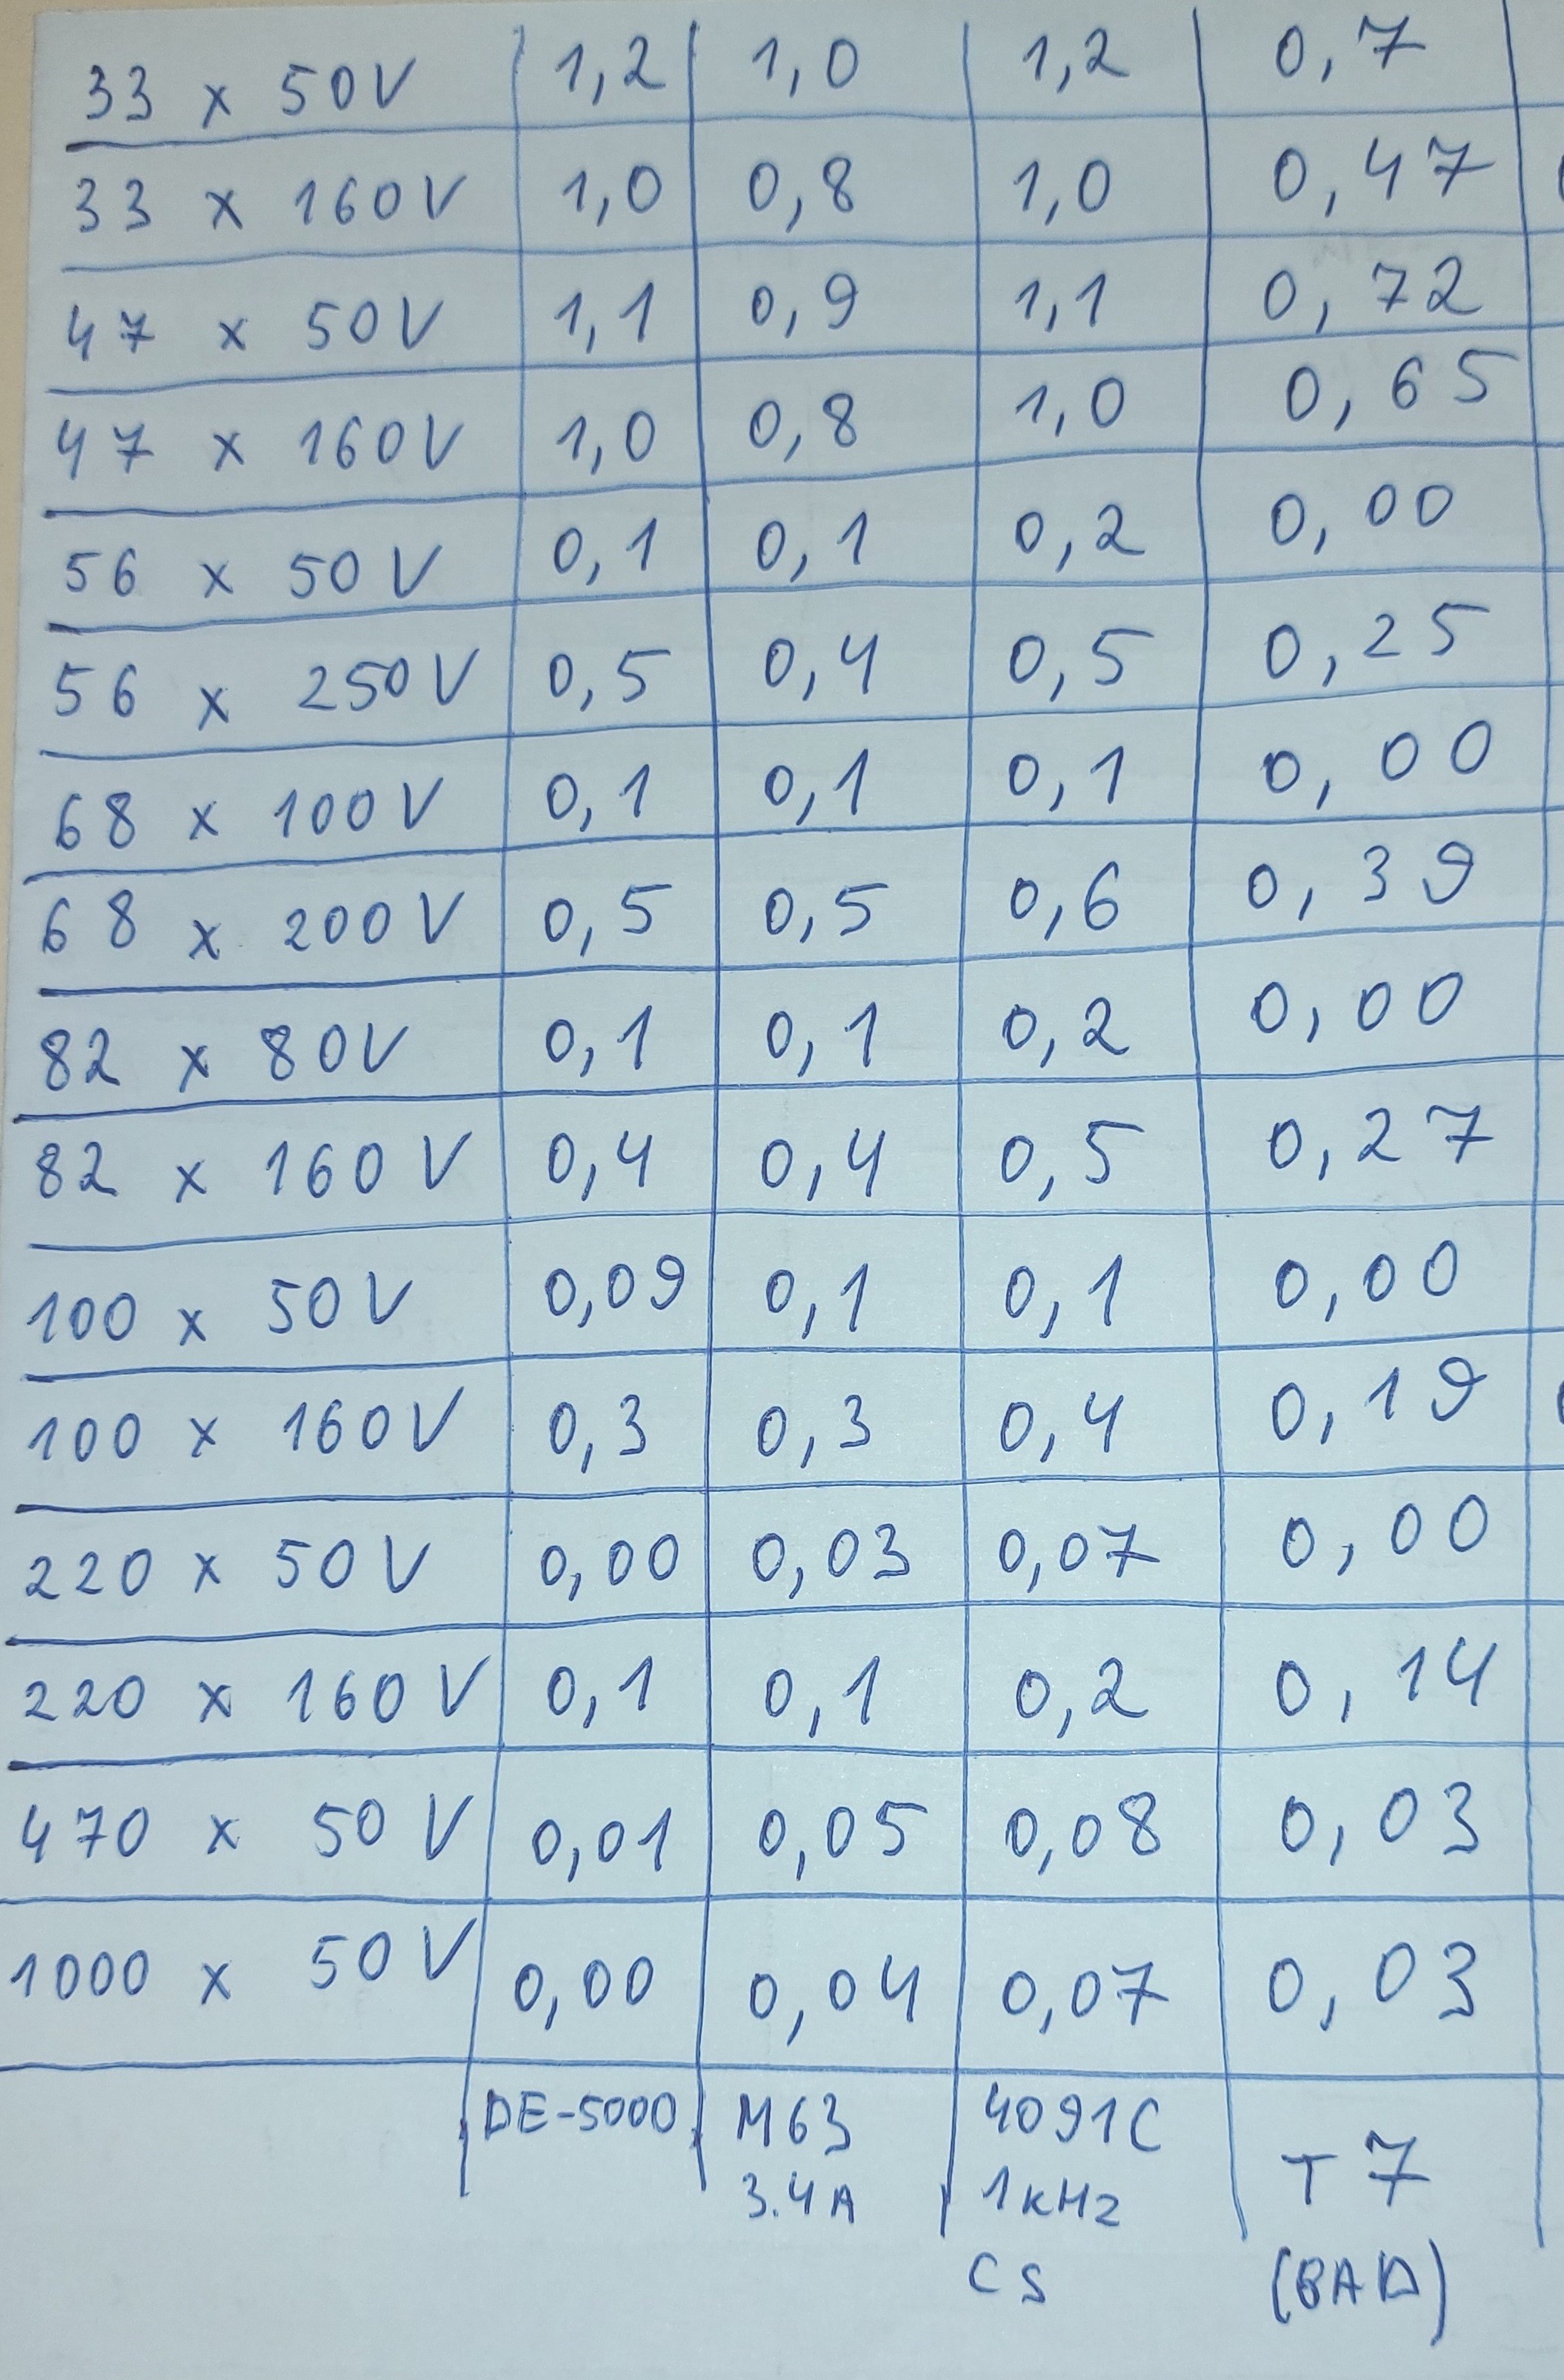 33 x 50V 1,2 1,0 1,2 0,7
33 x 160V 1,0 0,8 1,0 0,47
47 x 50V 1,1 0,9 1,1 0,72
47 x 160V 1,0 0,8 1,0 0,65
56 x 50V 0,1 0,1 0,2 0,00
56 x 250V 0,5 0,4 0,5 0,25
68 x 100V 0,1 0,1 0,1 0,00
68 x 200V 0,5 0,5 0,6 0,39
82 x 80V 0,1 0,1 0,2 0,00
82 x 160V 0,4 0,4 0,5 0,27
100 x 50V 0,09 0,1 0,1 0,00
100 x 160V 0,3 0,3 0,4 0,19
220 x 50V 0,00 0,03 0,07 0,00
220 x 160V 0,1 0,1 0,2 0,14
470 x 50V 0,01 0,05 0,08 0,03
1000 x 50V 0,00 0,04 0,07 0,03
DE-5000 M63 4091C T7
3.4A 1kHz
CS (BAD)